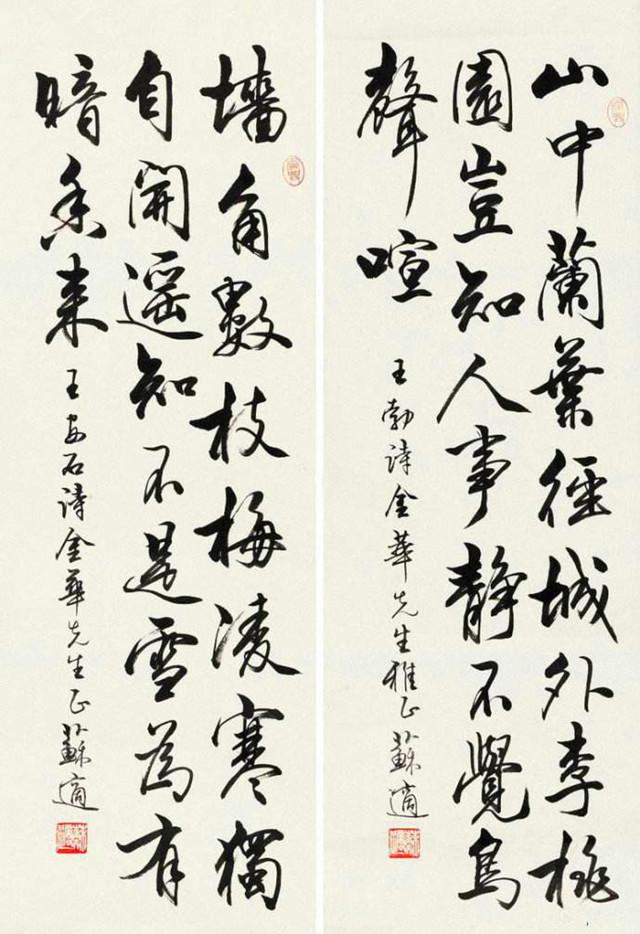 山中蘭葉徑城外李桃
園豈知人事靜不覺鳥
聲喧
王勃詩金華先生雅正蘇適
墻角數枝梅凌寒獨
自開遥知不是雪為有
暗香來
王安石詩金華先生正蘇適